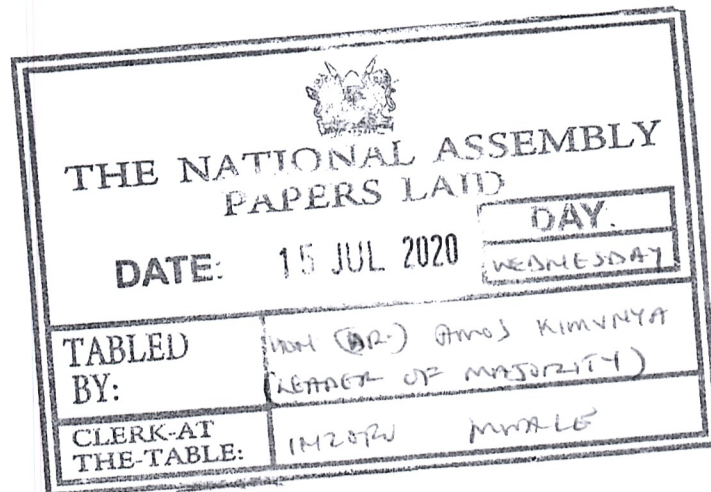 THE NATIONAL ASSEMBLY
PAPERS LAID
DATE: 15 JUL 2020
DAY.
WEDNESDAY
TABLED
BY:
HON (DR.) AMOS KIMUNYA
(LEADER OF MAJORITY)
CLERK-AT
THE-TABLE:
INZOFU MWALE